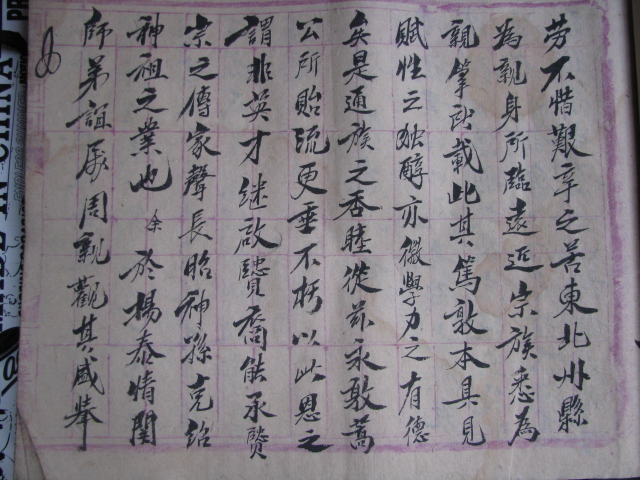 劳不惜艱辛之苦東北州縣
為親身所臨遠近宗族悉為
親筆所載此其篤敦本具見
賦性之独醇亦徵學力之有德
矣是通族之吞睦從茲永敢蒿
公所貽流更垂不朽以此思之
謂非英才继啟賢裔能承賢
宗之傳家聲長昭神孫克紹
神祖之業也 余於揚泰情関
師弟誼属周親觀其盛舉
CHINA